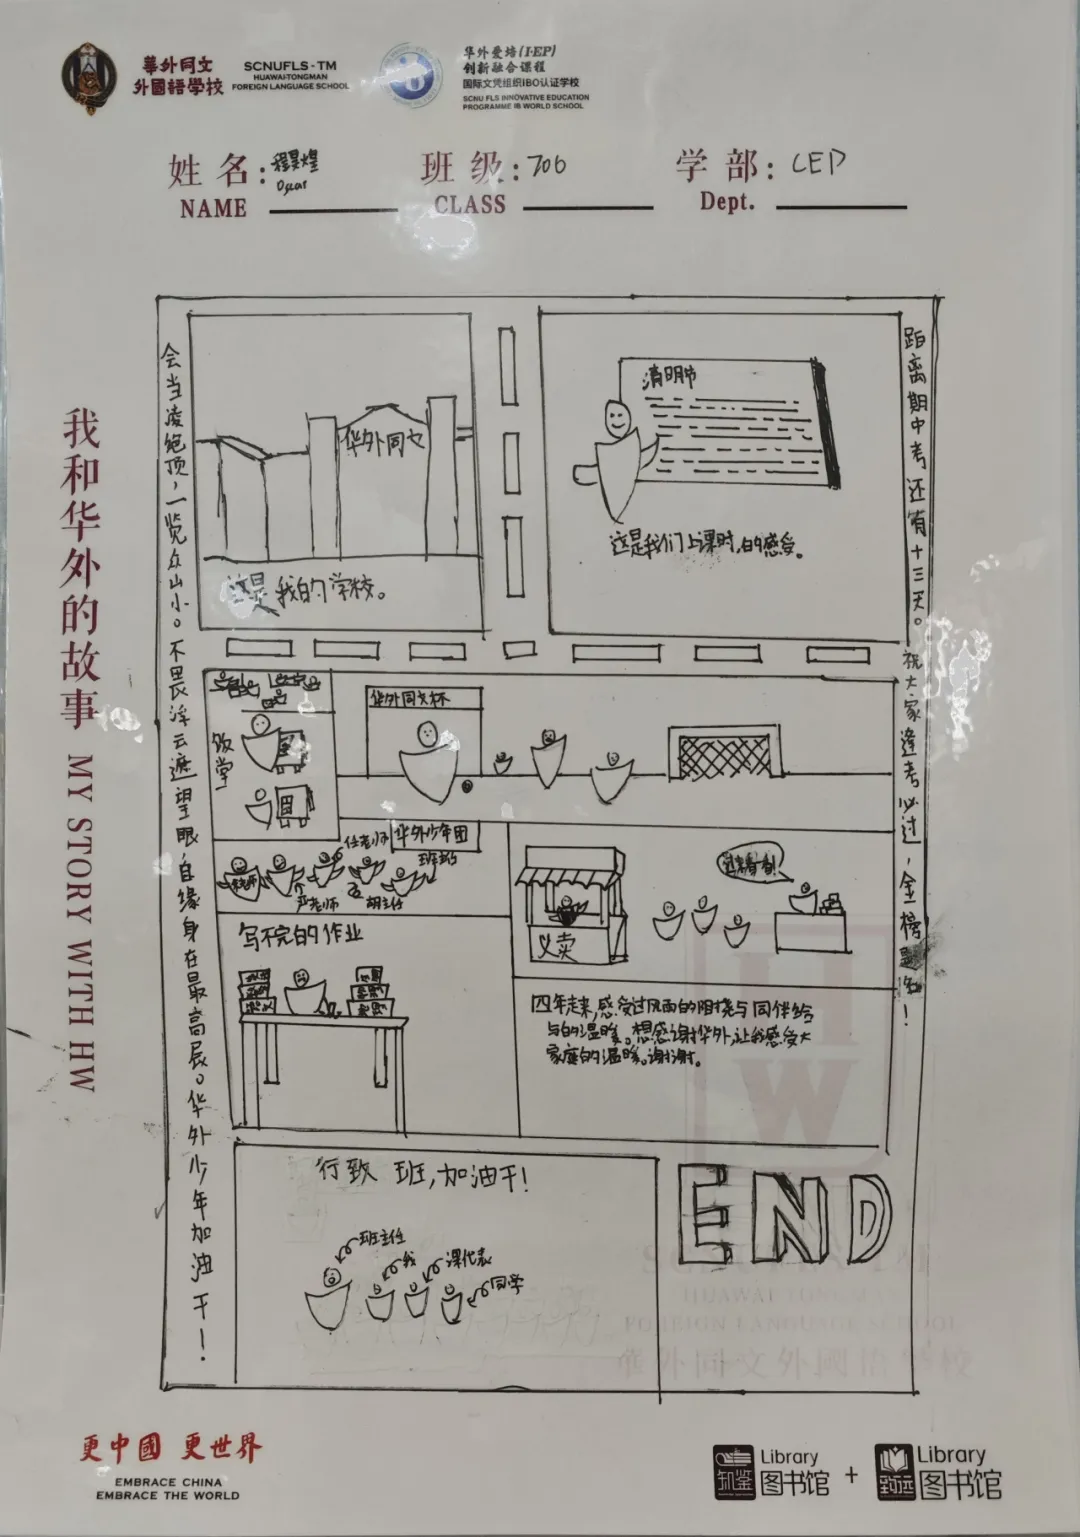 華外同文
外國語學校
SCNUFLS-TM
HUAWAI-TONGMAN
FOREIGN LANGUAGE SCHOOL
华外爱培(I·EP)
创新融合课程
国际文凭组织IBO认证学校
SCNU FLS INNOVATIVE EDUCATION
PROGRAMME IB WORLD SCHOOL
姓名:
NAME
Oscar
班级: 706
CLASS
学部: LEP
Dept.
我和华外的故事 MY STORY WITH HW
会当凌绝顶,一览众山小。不畏浮云遮望眼,自缘身在最高层。华外少年加油干!
距离期中考还有十三天。祝大家逢考必过,金榜题名!
华外同文
这是我的学校。
清明节
这是我们上课时,的感受。
饭堂
华外同文杯
华外少年团
任老师
班主任
严老师
胡主任
义卖
写不完的作业
四年走来,感受过风雨的阻挠与同伴给
与的温暖。想感谢华外,让我感受大
家庭的温暖。谢谢。
行致 班,加油干!
班主任
我
课代表
同学
END
更中國 更世界
EMBRACE CHINA
EMBRACE THE WORLD
知鉴
Library
图书馆
+
致远
Library
图书馆